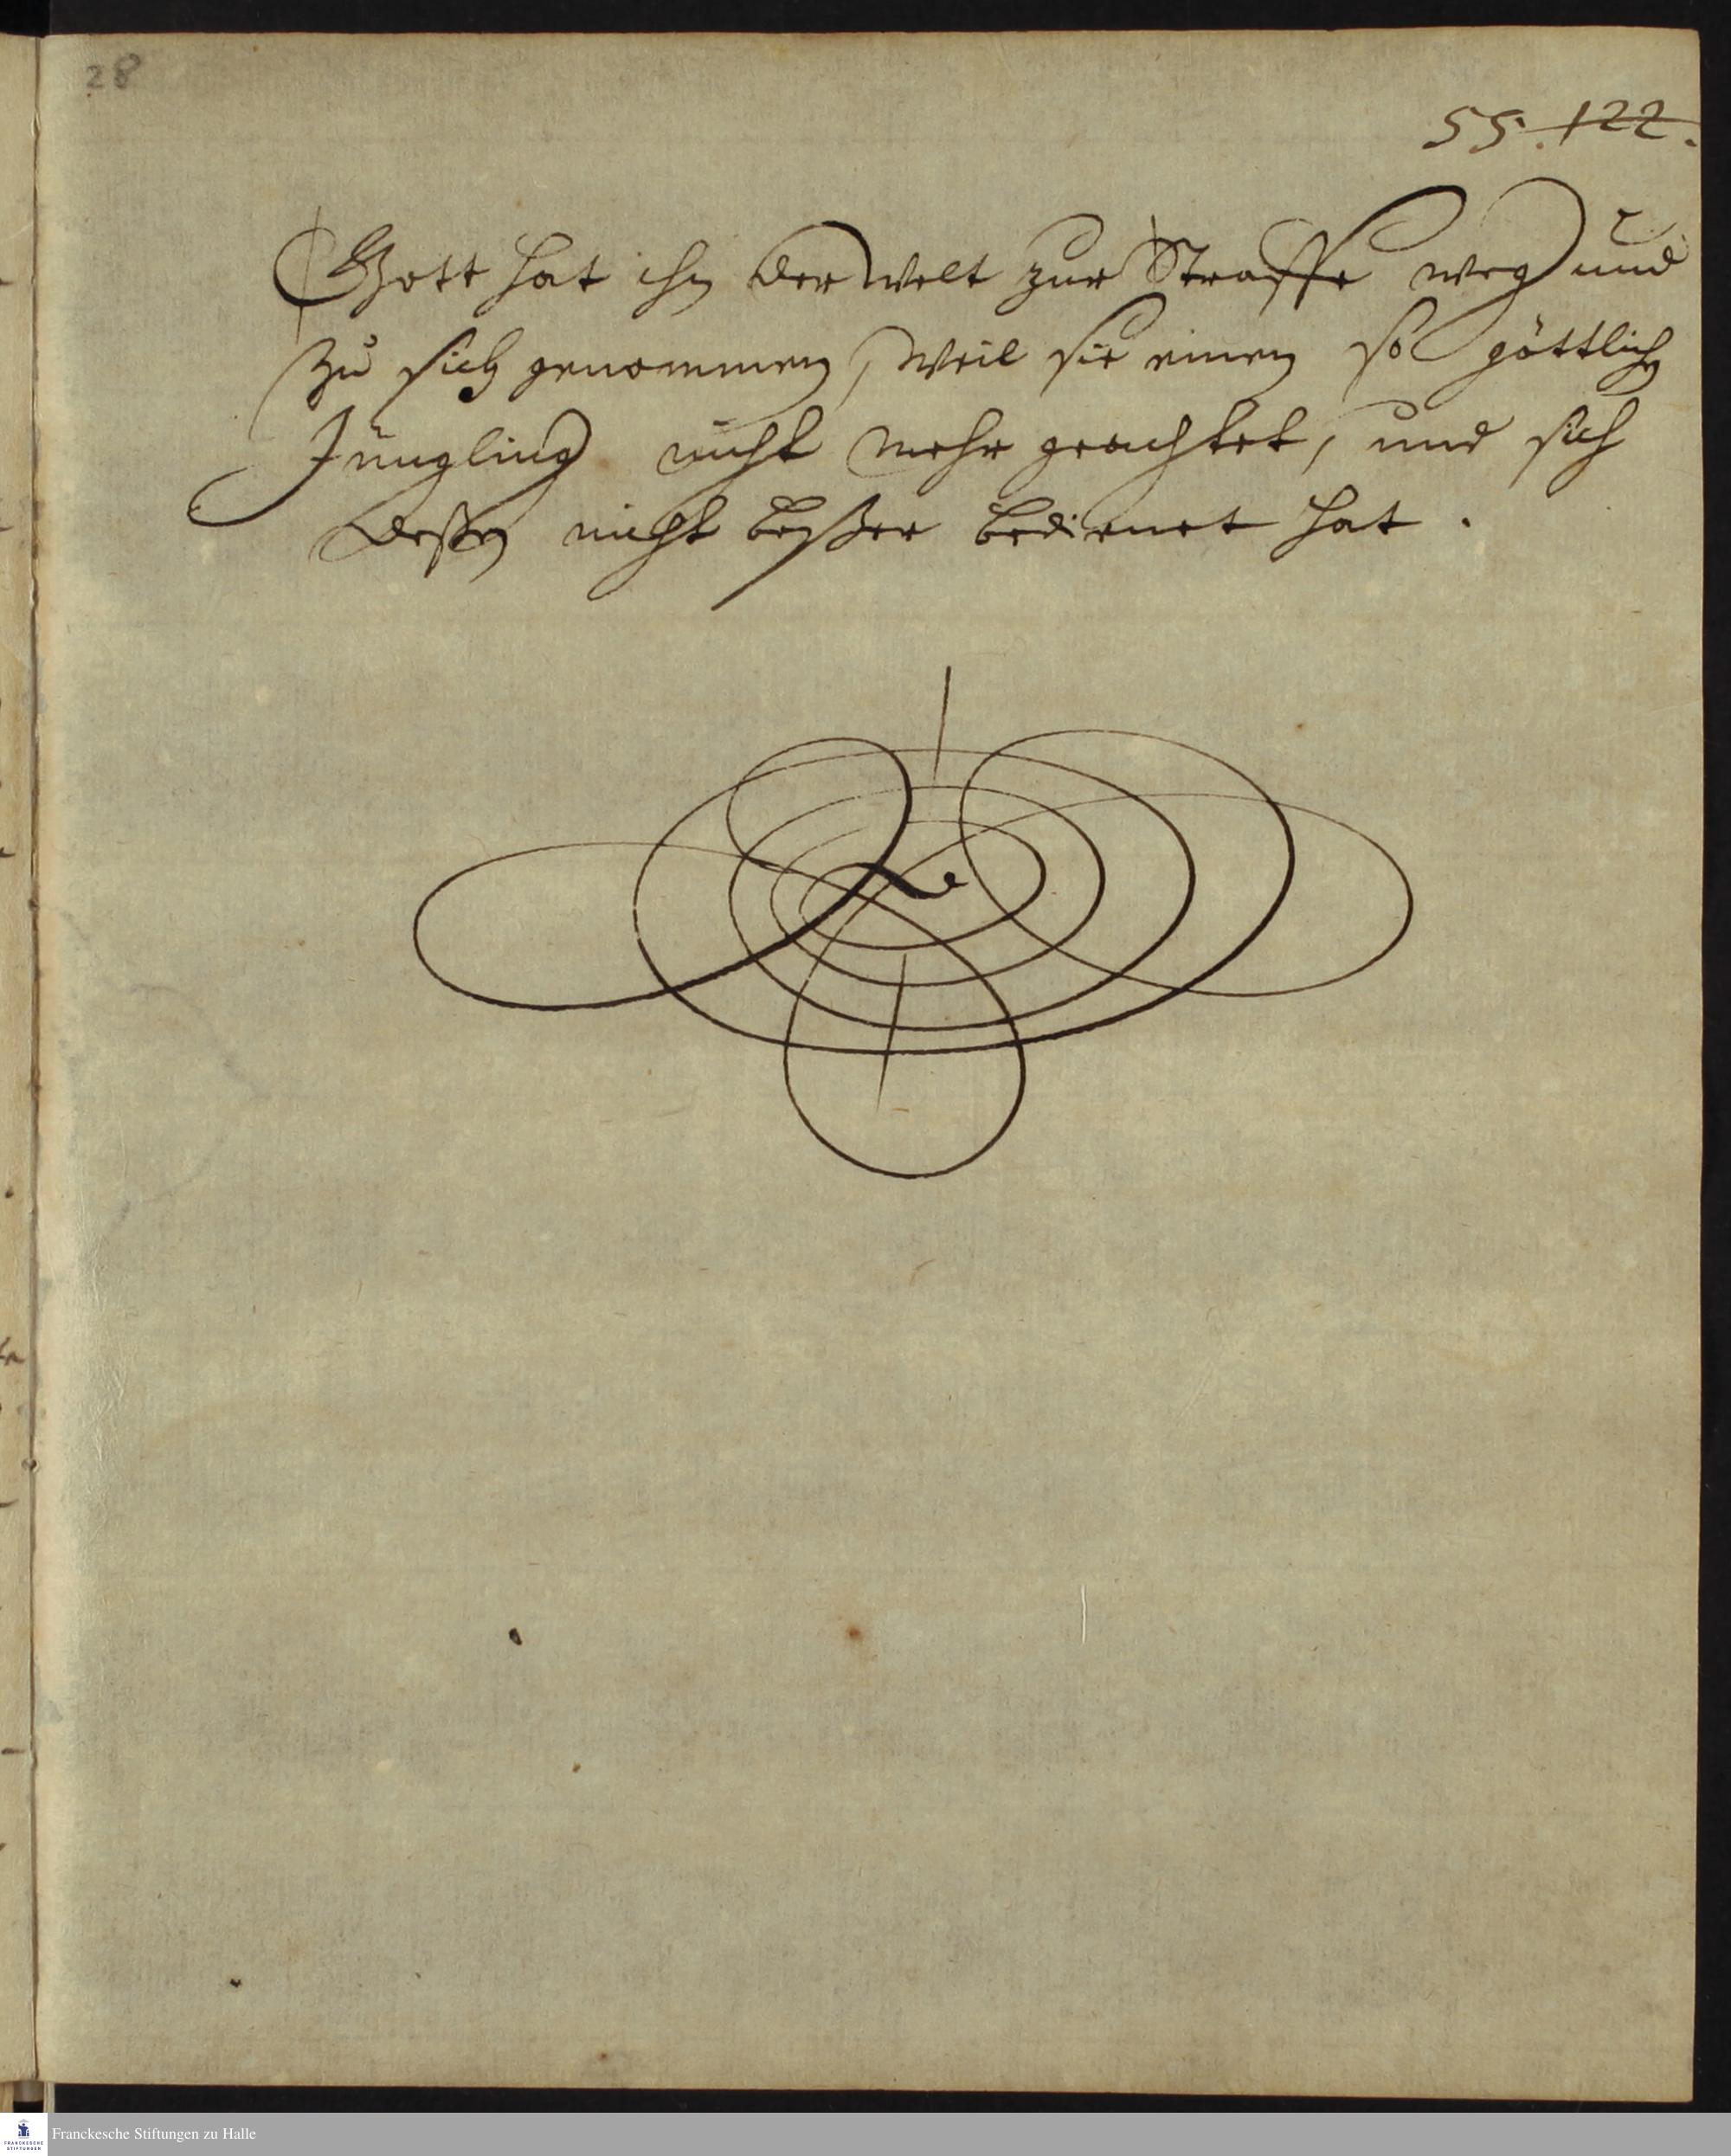 28
55. 122.
Gott hat ihn der Welt zur Straffe weg und
zu sich genommen, Weil sie einen so göttlichen
Jüngling nicht mehr geachtet, und sich
deßen nicht beßer bedienet hat.
Franckesche Stiftungen zu Halle
FRANCKESCHE
STIFTUNGEN